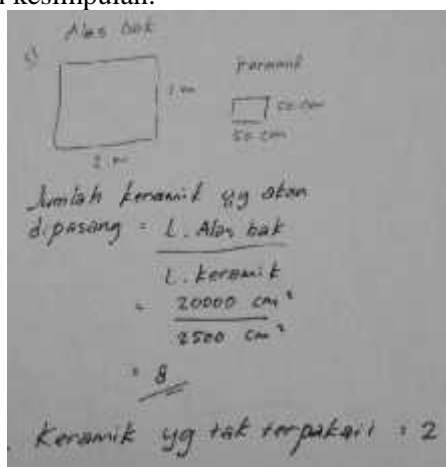 kesimpulan.
Alas bak
1 m
50 cm
50 cm
2 m
Jumlah keramik yg akan
dipasang = L. Alas bak
L. keramik
= 20000 cm²
2500 cm²
= 8
Keramik yg tak terpakai = 2